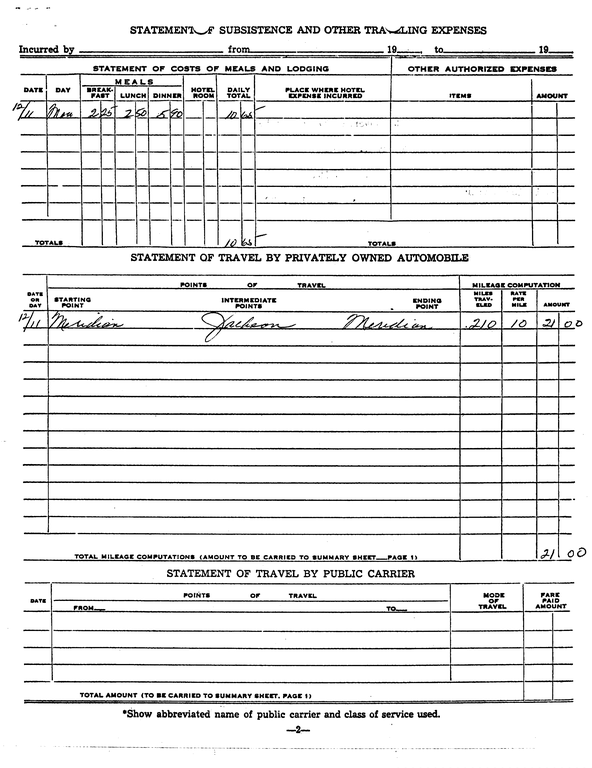 STATEMENT OF SUBSISTENCE AND OTHER TRAVELING EXPENSES
Incurred by from 19 to 19
STATEMENT OF COSTS OF MEALS AND LODGING OTHER AUTHORIZED EXPENSES
DATE DAY MEALS BREAK-FAST LUNCH DINNER HOTEL ROOM DAILY TOTAL PLACE WHERE HOTEL EXPENSE INCURRED ITEMS AMOUNT
12/11 Mon 2 25 2 50 5 90 10 65
TOTALS 10 65 TOTALS
STATEMENT OF TRAVEL BY PRIVATELY OWNED AUTOMOBILE
POINTS OF TRAVEL MILEAGE COMPUTATION
DATE OR DAY STARTING POINT INTERMEDIATE POINTS ENDING POINT MILES TRAV-ELED RATE PER MILE AMOUNT
12/11 Meridian Jackson Meridian 210 10 21 00
TOTAL MILEAGE COMPUTATIONS (AMOUNT TO BE CARRIED TO SUMMARY SHEET—PAGE 1) 21 00
STATEMENT OF TRAVEL BY PUBLIC CARRIER
DATE POINTS OF TRAVEL MODE OF TRAVEL FARE PAID AMOUNT
FROM— TO—
TOTAL AMOUNT (TO BE CARRIED TO SUMMARY SHEET, PAGE 1)
*Show abbreviated name of public carrier and class of service used.
—2—